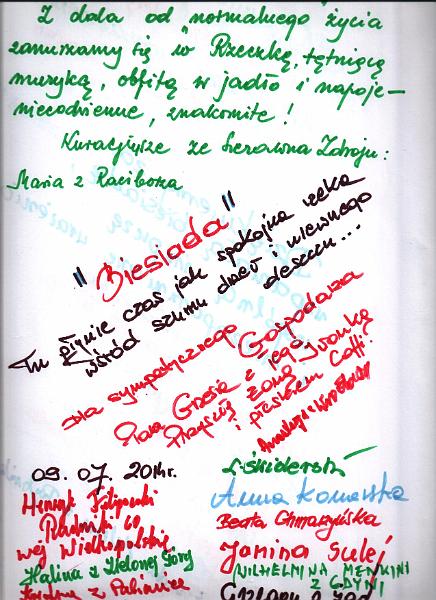 Z dala od "normalnego" życia
zanurzamy się w Rzeczkę, tętniącą
muzyką, obfitą w jadło i napoje –
niecodzienne, znakomite!
Kuracjusze ze Szczawna Zdroju:
Maria z Raciborza
"Biesiada"
Tu płynie czas jak spokojna rzeka
wśród szumu drzew i ulewnego
deszczu...
Dla sympatycznego Gospodarza
Pana Grzesia z jego Iwonką
żoną
i pieskiem Caffi!
09.07.2014r.
Henryk Filipowski
Radniki
woj Wielkopolskie
Halina z Zielonej Góry
z Pabianice
Anna
Beata
Janina Sulej
WILHELMINA MENKINI
Z GDYNI